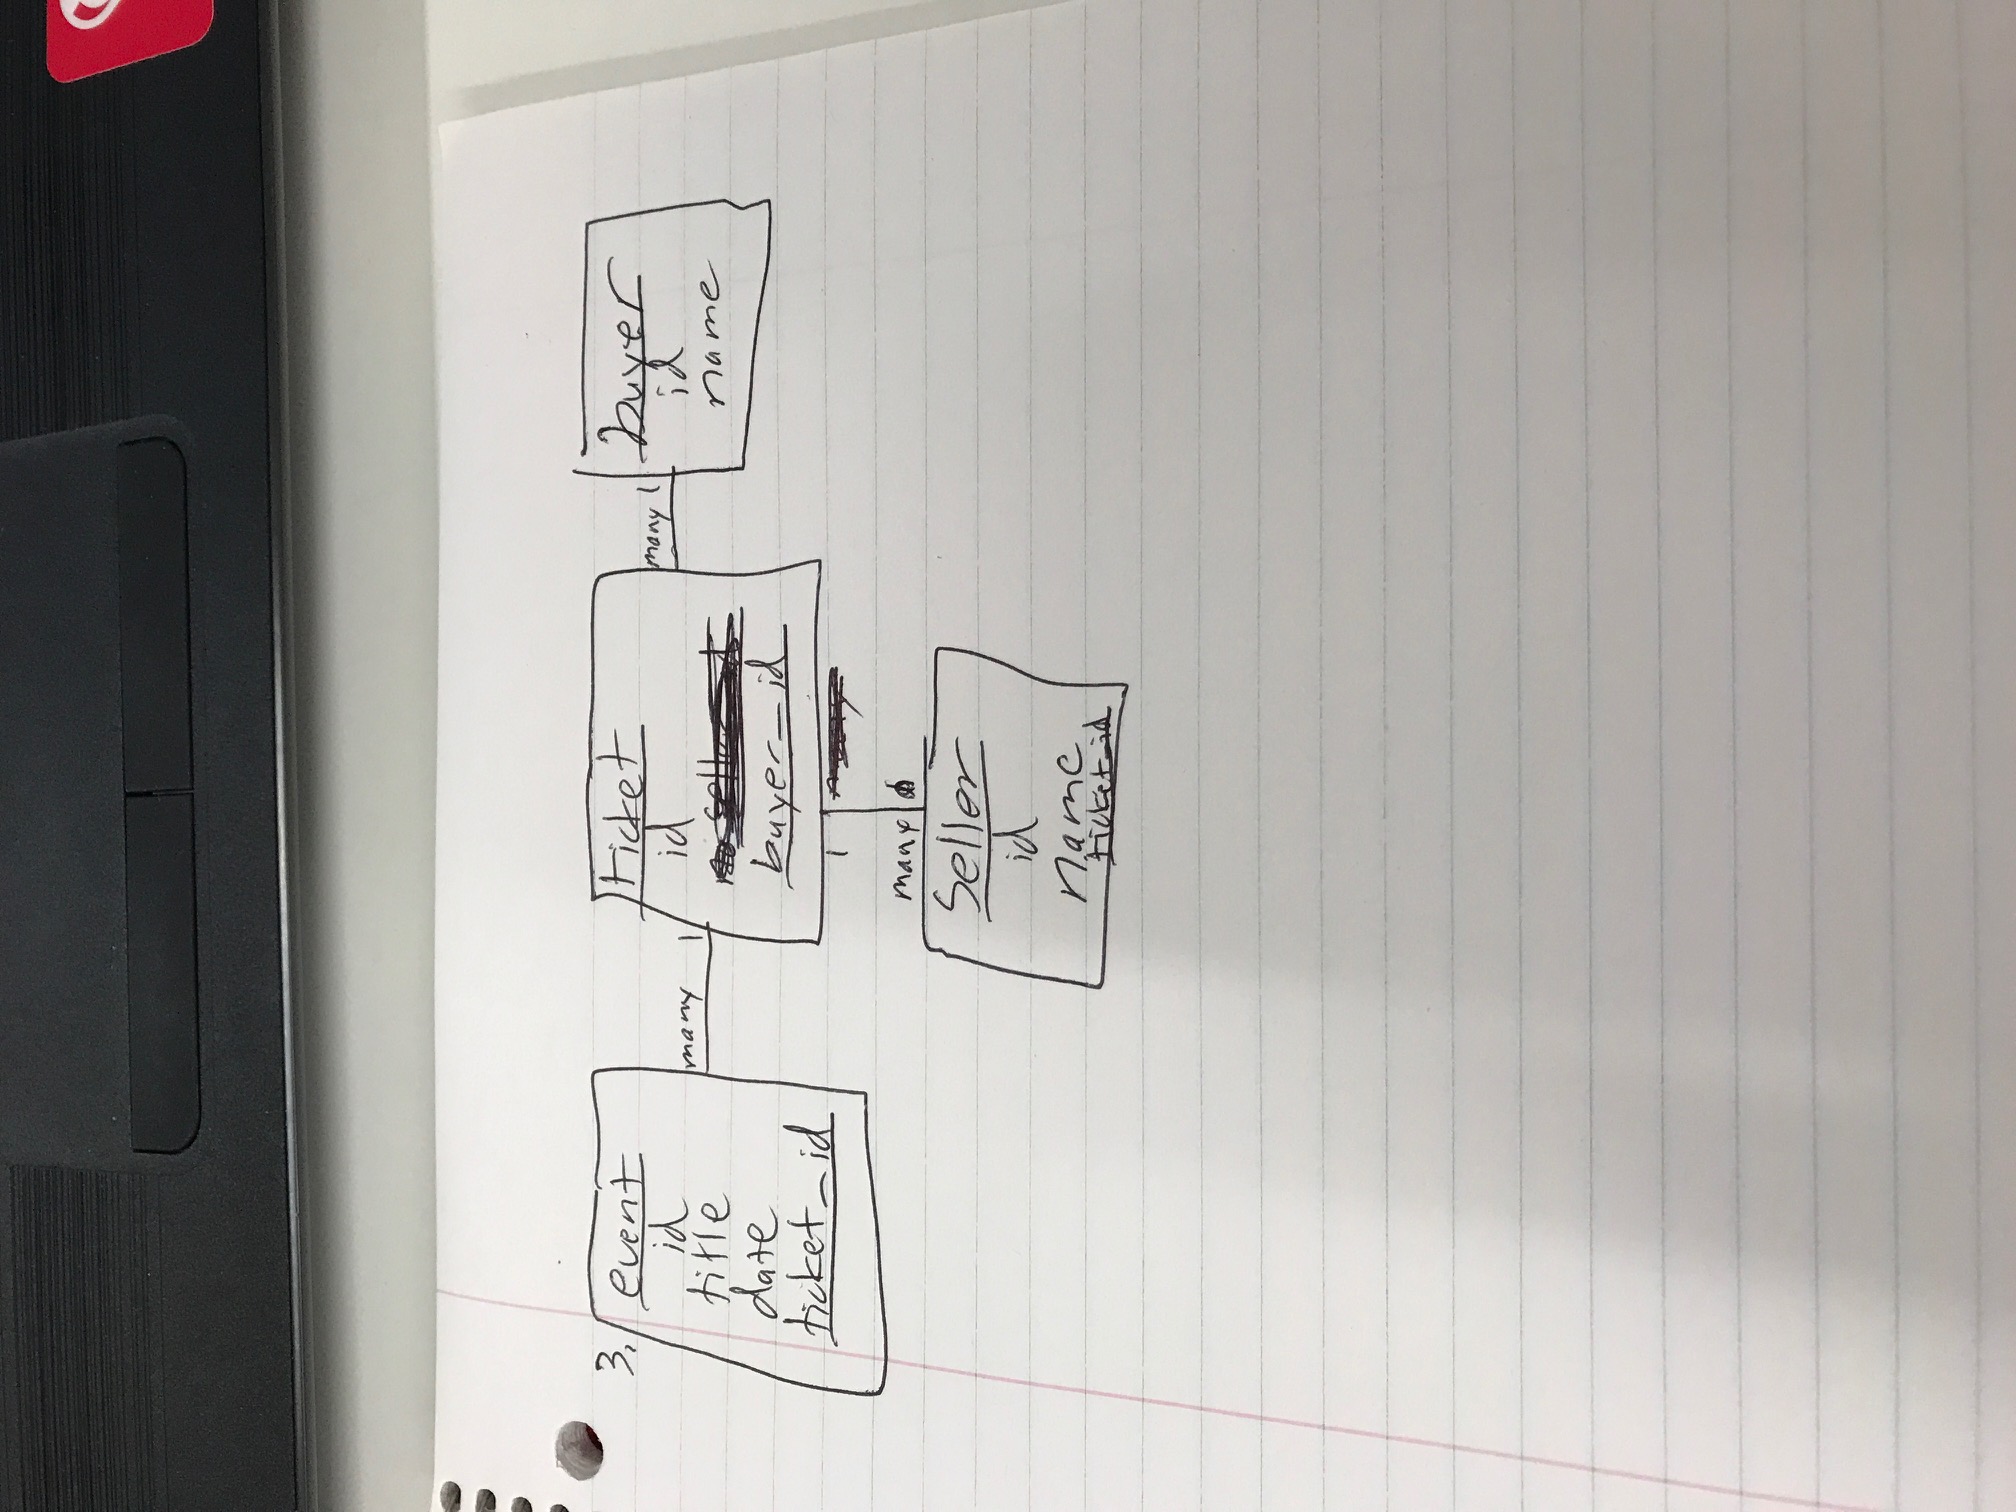 3.
event
id
title
date
ticket_id
many 1
ticket
id
buyer_id
many 1
buyer
id
name
1
many
Seller
id
name
ticket_id